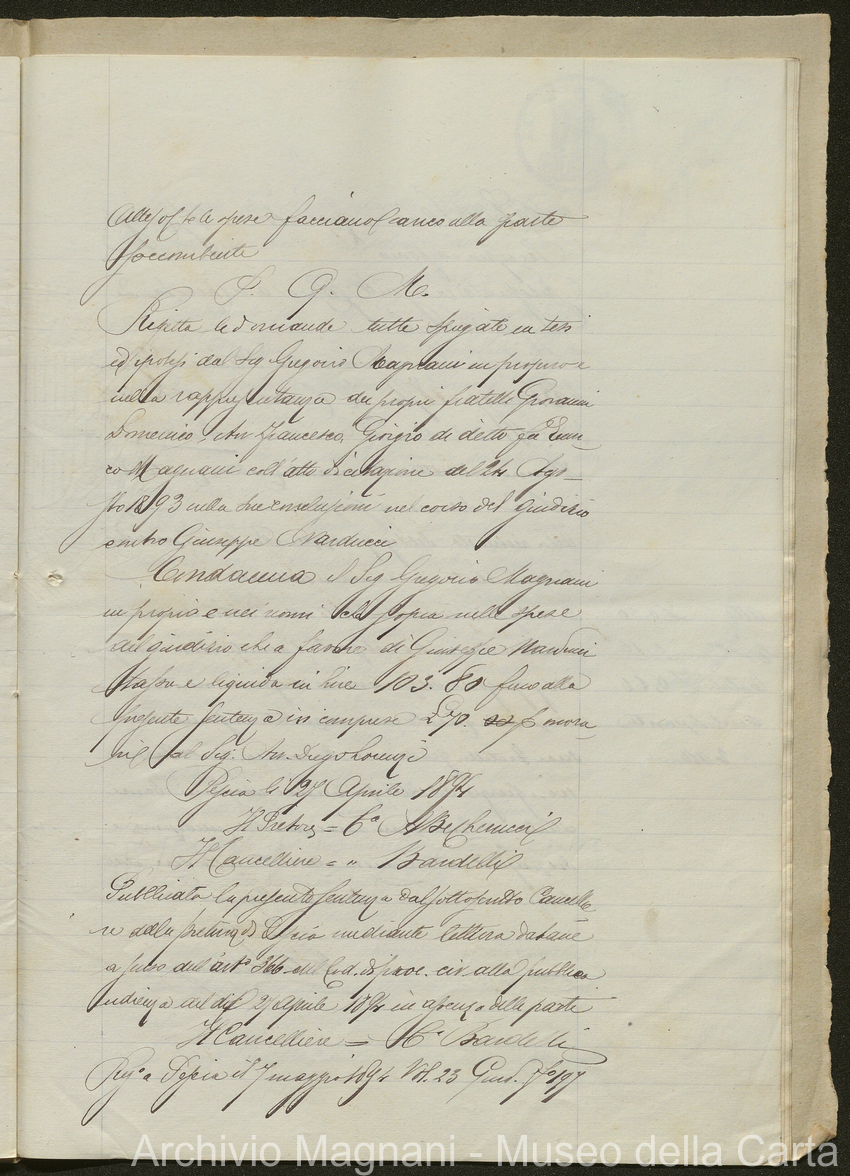 Attesoché le spese facciano carico alla parte
soccombente
P. Q. M.
Rigetta le domande tutte spiegate in tesi
ed ipotesi dal Sig Gregorio Magnani in proprio e
nella rappresentanza dei propri fratelli Giovanni
Domenico, Avv. Francesco, Giorgio di detto fu Enri
co Magnani coll'atto di citazione del 24 Ago
sto 1893 e nelle sue conclusioni nel corso del giudizio
contro Giuseppe Narducci
Condanna il Sig Gregorio Magnani
in proprio e nei nomi che sopra nelle spese
del giudizio che a favore di Giuseppe Narducci
tassa e liquida in lire 103. 80 fino alla
presente Sentenza ivi comprese £ 70. p onora
al Sig. Avv. Diego Lorenzi
Pescia li 27 Aprile 1894
Il Pretore = Co A Becherucci
Il Cancelliere = " Bardelli
Pubblicata la presente Sentenza dal sottoscritto Cancellie
re della pretura di Pescia mediante lettura datane
a senso dell'arto 366 del Cod. di proc. civ. alla pubblica
udienza del dì 27 Aprile 1894 in assenza delle parti
Il Cancelliere = Co Bardelli
Rega a Pescia il 7 maggio 1894 Vol. 23 Giud. fo 197
Archivio Magnani - Museo della Carta